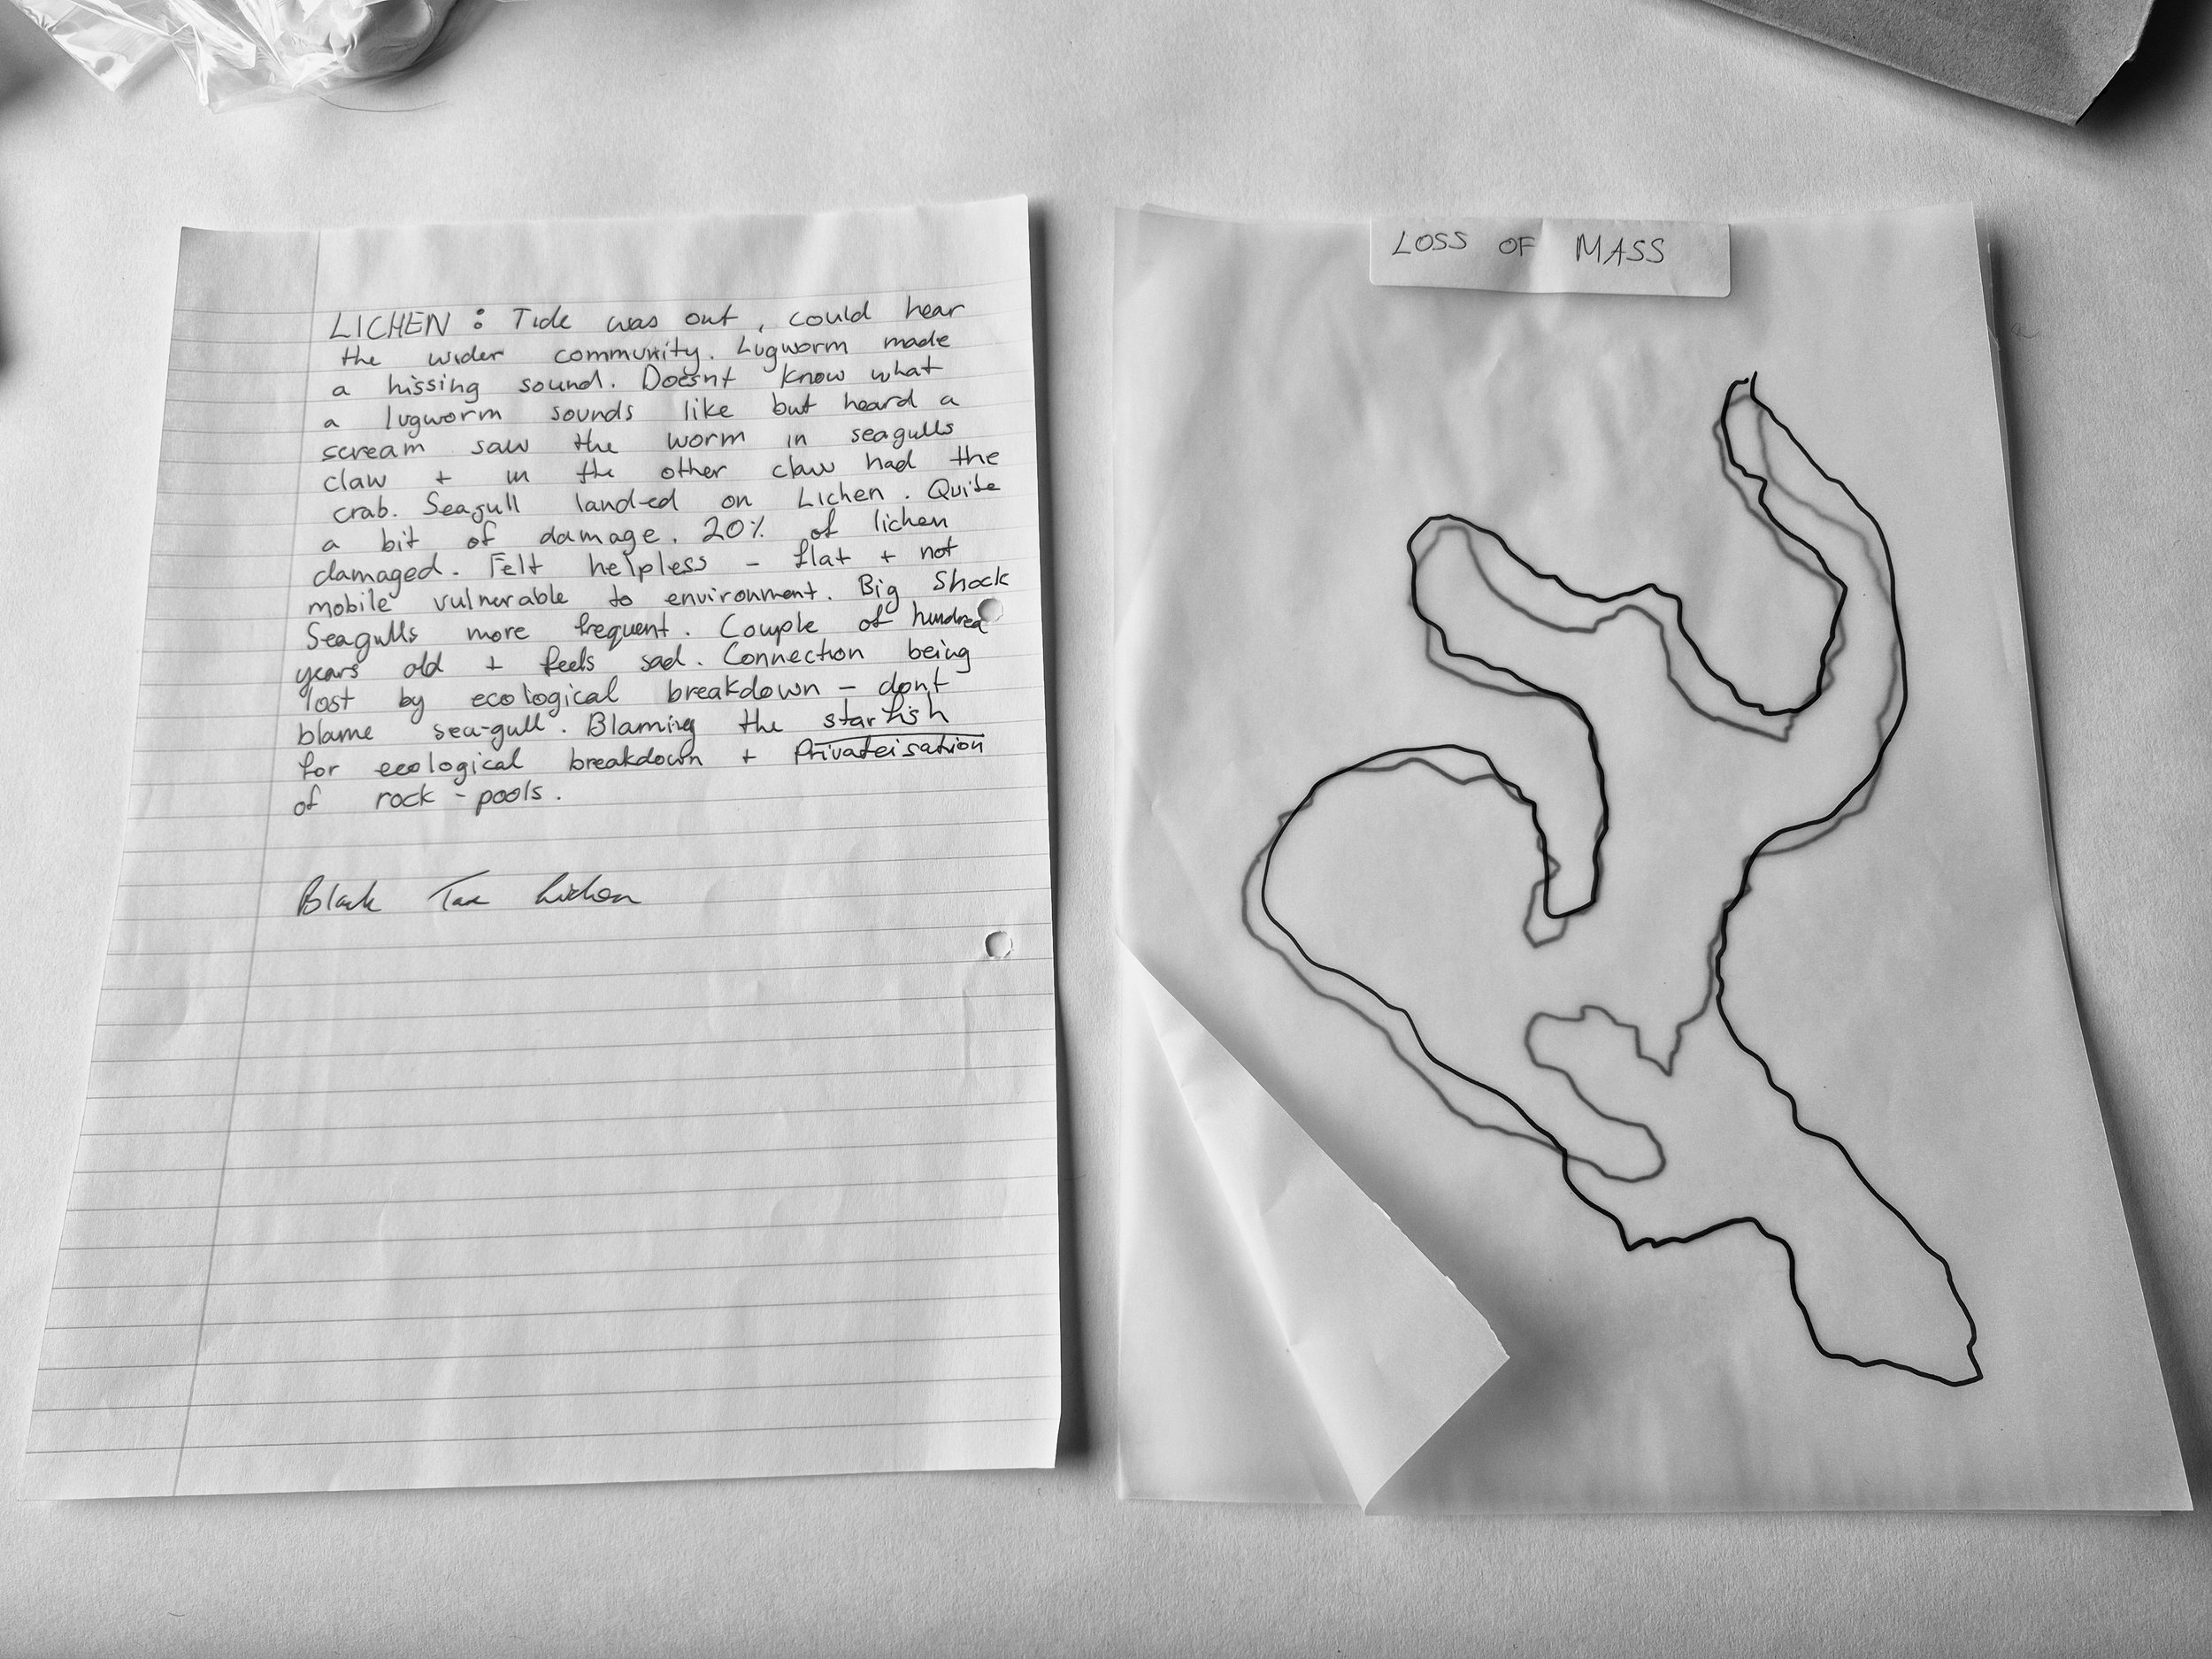 LICHEN : Tide was out, could hear
the wider community. Lugworm made
a hissing sound. Doesnt know what
a lugworm sounds like but heard a
scream saw the worm in seagulls
claw + in the other claw had the
crab. Seagull landed on Lichen. Quite
a bit of damage. 20% of lichen
damaged. Felt helpless - flat + not
mobile vulnerable to environment. Big Shock
Seagulls more frequent. Couple of hundred
years old + feels sad. Connection being
lost by ecological breakdown - dont
blame sea-gull. Blaming the starfish
for ecological breakdown + Privateisation
of rock - pools.
Black Tar Lichen
LOSS OF MASS